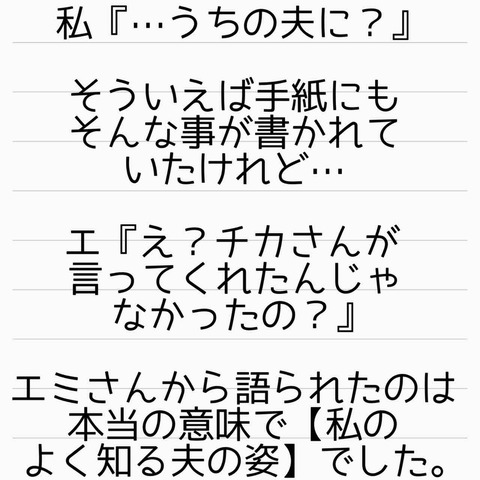 私『…うちの夫に？』
そういえば手紙にも
そんな事が書かれて
いたけれど…
エ『え？チカさんが
言ってくれたんじゃ
なかったの？』
エミさんから語られたのは
本当の意味で【私の
よく知る夫の姿】でした。